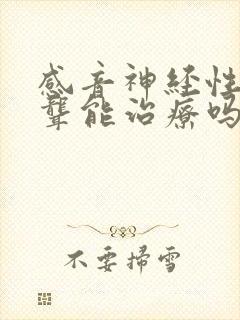 感音神经性
聋能治疗吗
不要掃雪